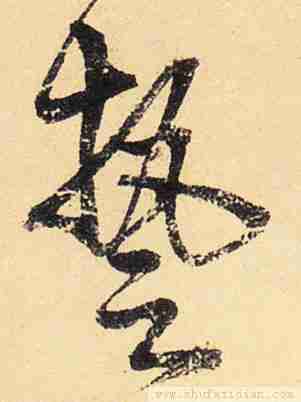 藝
www.shufazidian.com